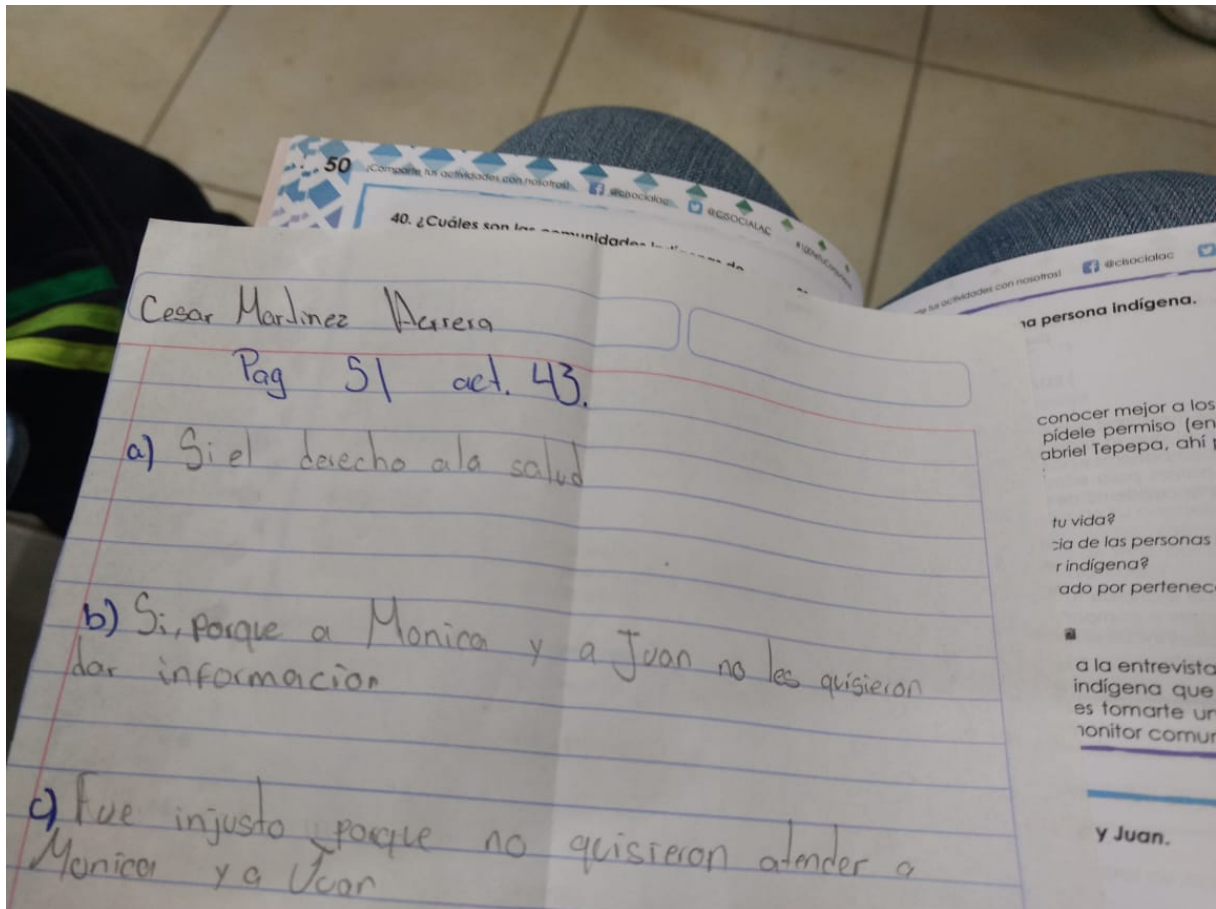 50 ¡Comparte tus actividades con nosotros! @cisocialac @CISOCIALAC
40. ¿Cuáles son las comunidades indígenas de
Cesar Martinez Herrera
Pag 51 act. 43.
a) Si el derecho ala salud
b) Si, porque a Monica y a Juan no les quisieron
dar información
c) Fue injusto porque no quisieron atender a
Monica y a Juan
tus actividades con nosotros! @cisocialac
na persona indígena.
conocer mejor a los
pídele permiso (en
abriel Tepepa, ahí
tu vida?
cia de las personas
r indígena?
ado por pertenec
a la entrevista
indígena que
es tomarte un
monitor comun
y Juan.